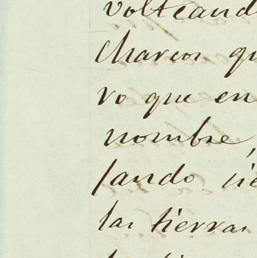 volteand
charcos qu
ro que en
nombre,
jando
las tierras